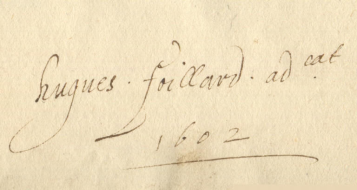 hugues . foillard . ad cat.
1602